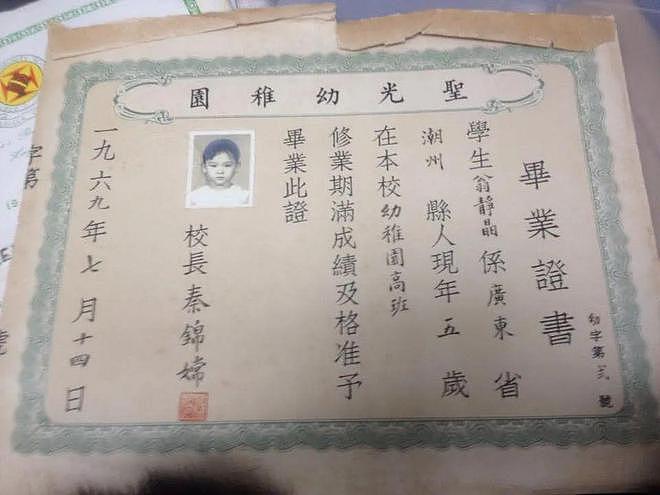 聖光幼稚園
畢業證書
幼字第弍號
學生翁靜晶係廣東省
潮州縣人現年五歲
在本校幼稚園高班
修業期滿成績及格准予
畢業此證
校長秦錦嫦
一九六九年七月十四日
字第
號